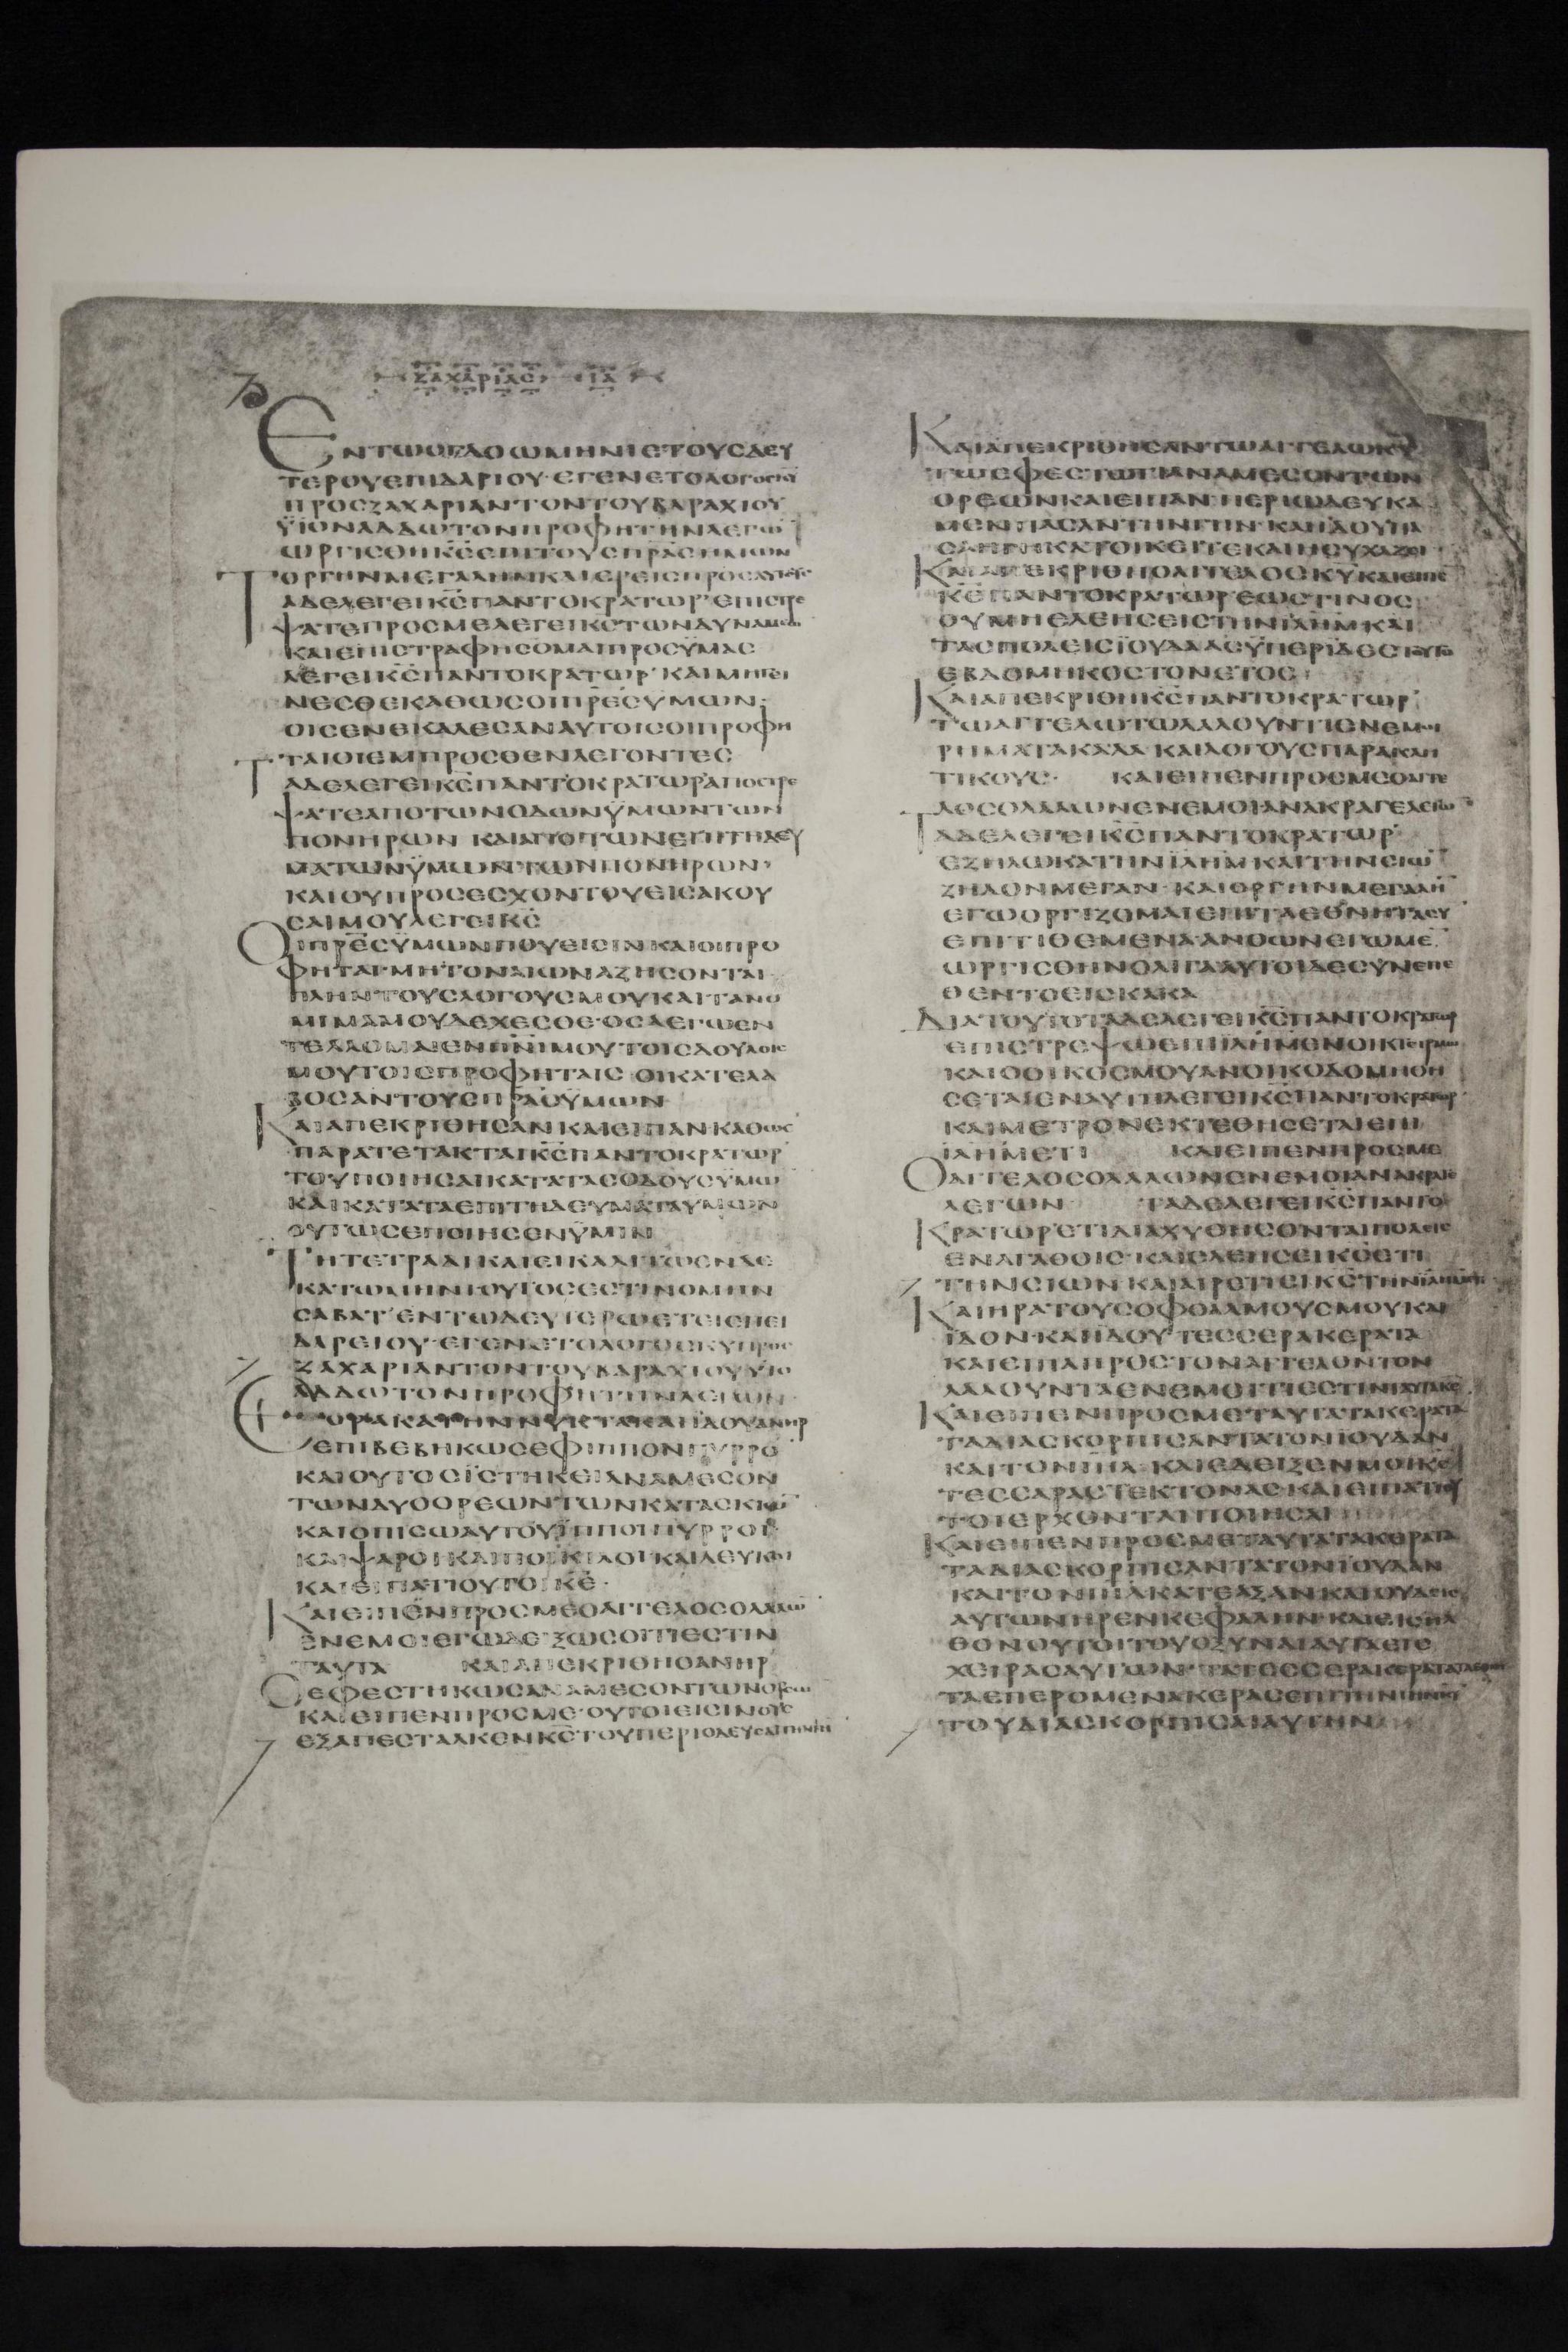 ΖΑΧΑΡΙΑС ΙΑ
ΕΝΤΩΟΓΔΟΩΜΗΝΙΕΤΟΥСΔΕΥ
ΤΕΡΟΥΕΠΙΔΑΡΙΟΥ·ΕΓΕΝΕΤΟΛΟΓΟСΚΥ
ΠΡΟСΖΑΧΑΡΙΑΝΤΟΝΤΟΥΒΑΡΑΧΙΟΥ
ΥΙΟΝΑΔΔΩΤΟΝΠΡΟΦΗΤΗΝΛΕΓΩ
ΩΡΓΙСΘΗΚСΕΠΙΤΟΥСΠΡΑСΗΜΩΝ
ΟΡΓΗΝΜΕΓΑΛΗΝΚΑΙΕΡΕΙСΠΡΟСΑΥΤΟΥС
ΤΑΔΕΛΕΓΕΙΚСΠΑΝΤΟΚΡΑΤΩΡ·ΕΠΙСΤΡΕ
ΨΑΤΕΠΡΟСΜΕΛΕΓΕΙΚСΤΩΝΔΥΝΑΜΕΩ
ΚΑΙΕΠΙСΤΡΑΦΗСΟΜΑΙΠΡΟСΥΜΑС
ΛΕΓΕΙΚСΠΑΝΤΟΚΡΑΤΩΡ·ΚΑΙΜΗΓΕΙ
ΝΕСΘΕΚΑΘΩСΟΙΠΡΕСΥΜΩΝ·
ΟΙСΕΝΕΚΑΛΕСΑΝΑΥΤΟΙСΟΙΠΡΟΦΗ
ΤΑΙΟΙΕΜΠΡΟСΘΕΝΛΕΓΟΝΤΕС
ΤΑΔΕΛΕΓΕΙΚСΠΑΝΤΟΚΡΑΤΩΡΑΠΟСΤΡΕ
ΨΑΤΕΑΠΟΤΩΝΟΔΩΝΥΜΩΝΤΩΝ
ΠΟΝΗΡΩΝ ΚΑΙΑΠΟΤΩΝΕΠΙΤΗΔΕΥ
ΜΑΤΩΝΥΜΩΝΤΩΝΠΟΝΗΡΩΝ·
ΚΑΙΟΥΠΡΟСΕСΧΟΝΤΟΥΕΙСΑΚΟΥ
СΑΙΜΟΥΛΕΓΕΙΚС
ΟΙΠΡΕСΥΜΩΝΠΟΥΕΙСΙΝΚΑΙΟΙΠΡΟ
ΦΗΤΑΙ·ΜΗΤΟΝΑΙΩΝΑΖΗСΟΝΤΑΙ·
ΠΛΗΝΤΟΥСΛΟΓΟΥСΜΟΥΚΑΙΤΑΝΟ
ΜΙΜΑΜΟΥΔΕΧΕСΘΕ·ΟСΑΕΓΩΕΝ
ΤΕΛΛΟΜΑΙΕΝΠΝΙΜΟΥΤΟΙСΔΟΥΛΟΙС
ΜΟΥΤΟΙСΠΡΟΦΗΤΑΙС ΟΙΚΑΤΕΛΑ
ΒΟСΑΝΤΟΥСΠΡΑСΥΜΩΝ
ΚΑΙΑΠΕΚΡΙΘΗСΑΝΚΑΙΕΙΠΑΝ·ΚΑΘΩС
ΠΑΡΑΤΕΤΑΚΤΑΙΚСΠΑΝΤΟΚΡΑΤΩΡ
ΤΟΥΠΟΙΗСΑΙΚΑΤΑΤΑСΟΔΟΥСΥΜΩ
ΚΑΙΚΑΤΑΤΑΕΠΙΤΗΔΕΥΜΑΤΑΥΜΩΝ
ΟΥΤΩСΕΠΟΙΗСΕΝΥΜΙΝ
ΤΗΤΕΤΡΑΔΙΚΑΙΕΙΚΑΔΙΤΩΕΝΔΕ
ΚΑΤΩΜΗΝΙΟΥΤΟСΕСΤΙΝΟΜΗΝ
СΑΒΑΤ·ΕΝΤΩΔΕΥΤΕΡΩΕΤΕΙΕΠΕΙ
ΔΑΡΕΙΟΥ·ΕΓΕΝΕΤΟΛΟΓΟСΚΥΠΡΟС
ΖΑΧΑΡΙΑΝΤΟΝΤΟΥΒΑΡΑΧΙΟΥΥΙΟ
ΑΔΔΩΤΟΝΠΡΟΦΗΤΗΝΛΕΓΩΝ
ΕΟΡΑΚΑΤΗΝΝΥΚΤΑΚΑΙΙΔΟΥΑΝΗΡ
ΕΠΙΒΕΒΗΚΩСΕΦΙΠΠΟΝΠΥΡΡΟ
ΚΑΙΟΥΤΟСΙСΤΗΚΕΙΑΝΑΜΕСΟΝ
ΤΩΝΔΥΟΟΡΕΩΝΤΩΝΚΑΤΑСΚΙΩ
ΚΑΙΟΠΙСΩΑΥΤΟΥΙΠΠΟΙΠΥΡΡΟΙ
ΚΑΙΨΑΡΟΙΚΑΙΠΟΙΚΙΛΟΙΚΑΙΛΕΥΚΟΙ
ΚΑΙΕΙΠΑΤΙΟΥΤΟΙΚΕ·
ΚΑΙΕΙΠΕΝΠΡΟСΜΕΟΑΓΓΕΛΟСΟΛΑΛΩ
ΕΝΕΜΟΙΕΓΩΔΕΙΞΩСΟΙΤΙΕСΤΙΝ
ΤΑΥΤΑ ΚΑΙΑΠΕΚΡΙΘΗΟΑΝΗΡ
ΟΕΦΕСΤΗΚΩСΑΝΑΜΕСΟΝΤΩΝΟΡΕΩ
ΚΑΙΕΙΠΕΝΠΡΟСΜΕ·ΟΥΤΟΙΕΙСΙΝΟΥС
ΕΞΑΠΕСΤΑΛΚΕΝΚСΤΟΥΠΕΡΙΟΔΕΥСΑΙΤΗΝΓΗ
ΚΑΙΑΠΕΚΡΙΘΗСΑΝΤΩΑΓΓΕΛΩΚΥ
ΤΩΕΦΕСΤΩΤΙΑΝΑΜΕСΟΝΤΩΝ
ΟΡΕΩΝΚΑΙΕΙΠΑΝ·ΠΕΡΙΩΔΕΥΚΑ
ΜΕΝΠΑСΑΝΤΗΝΓΗΝ·ΚΑΙΙΔΟΥΠΑ
СΑΗΓΗΚΑΤΟΙΚΕΙΤΕΚΑΙΗСΥΧΑΖΕΙ
ΚΑΙΑΠΕΚΡΙΘΗΟΑΓΓΕΛΟСΚΥΚΑΙΕΙΠΕ
ΚΕΠΑΝΤΟΚΡΑΤΩΡΕΩСΤΙΝΟС
ΟΥΜΗΕΛΕΗСΕΙСΤΗΝΙΛΗΜΚΑΙ
ΤΑСΠΟΛΕΙСΙΟΥΔΑΑСΥΠΕΡΙΔΕСΤΟΥΤΟ
ΕΒΔΟΜΗΚΟСΤΟΝΕΤΟС
ΚΑΙΑΠΕΚΡΙΘΗΚСΠΑΝΤΟΚΡΑΤΩΡ
ΤΩΑΓΓΕΛΩΤΩΛΑΛΟΥΝΤΙΕΝΕΜΟΙ
ΡΗΜΑΤΑΚΑΛΑ ΚΑΙΛΟΓΟΥСΠΑΡΑΚΛΗ
ΤΙΚΟΥС· ΚΑΙΕΙΠΕΝΠΡΟСΜΕΟΑΓΓΕ
ΛΟСΟΛΑΛΩΝΕΝΕΜΟΙ·ΑΝΑΚΡΑΓΕΛΕΓΩ
ΤΑΔΕΛΕΓΕΙΚСΠΑΝΤΟΚΡΑΤΩΡ
ΕΖΗΛΩΚΑΤΗΝΙΛΗΜΚΑΙΤΗΝСΙΩ
ΖΗΛΟΝΜΕΓΑΝ·ΚΑΙΟΡΓΗΝΜΕΓΑΛΗ
ΕΓΩΟΡΓΙΖΟΜΑΙΕΠΙΤΑΕΘΝΗΤΑСΥ
ΕΠΙΤΙΘΕΜΕΝΑ·ΑΝΘΩΝΕΓΩΜΕ
ΩΡΓΙСΘΗΝΟΛΙΓΑΑΥΤΟΙΔΕСΥΝΕΠΕ
ΘΕΝΤΟΕΙСΚΑΚΑ
ΔΙΑΤΟΥΤΟΤΑΔΕΛΕΓΕΙΚСΠΑΝΤΟΚΡΑΤΩΡ
ΕΠΙСΤΡΕΨΩΕΠΙΙΛΗΜΕΝΟΙΚΤΕΙΡΜΩ
ΚΑΙΟΟΙΚΟСΜΟΥΑΝΟΙΚΟΔΟΜΗΘΗ
СΕΤΑΙΕΝΑΥΤΗΛΕΓΕΙΚСΠΑΝΤΟΚΡΑΤΩΡ
ΚΑΙΜΕΤΡΟΝΕΚΤΕΘΗСΕΤΑΙΕΠΙ
ΙΛΗΜΕΤΙ ΚΑΙΕΙΠΕΝΠΡΟСΜΕ
ΟΑΓΓΕΛΟСΟΛΑΛΩΝΕΝΕΜΟΙΑΝΑΚΡΑΓΕ
ΛΕΓΩΝ ΤΑΔΕΛΕΓΕΙΚСΠΑΝΤΟ
ΚΡΑΤΩΡΕΤΙΔΙΑΧΥΘΗСΟΝΤΑΙΠΟΛΕΙС
ΕΝΑΓΑΘΟΙС·ΚΑΙΕΛΕΗСΕΙΚСΕΤΙ
ΤΗΝСΙΩΝ ΚΑΙΑΙΡΕΤΙΕΙΚСΤΗΝΙΛΗΜ
ΚΑΙΗΡΑΤΟΥСΟΦΘΑΛΜΟΥСΜΟΥΚΑΙ
ΙΔΟΝ·ΚΑΙΙΔΟΥΤΕССΕΡΑΚΕΡΑΤΑ
ΚΑΙΕΙΠΑΠΡΟСΤΟΝΑΓΓΕΛΟΝΤΟΝ
ΛΑΛΟΥΝΤΑΕΝΕΜΟΙΤΙΕСΤΙΝΤΑΥΤΑΚΕ
ΚΑΙΕΙΠΕΝΠΡΟСΜΕΤΑΥΤΑΤΑΚΕΡΑΤΑ
ΤΑΔΙΑСΚΟΡΠΙСΑΝΤΑΤΟΝΙΟΥΔΑΝ
ΚΑΙΤΟΝΙΗΛ·ΚΑΙΕΔΕΙΞΕΝΜΟΙΚС
ΤΕССΑΡΑСΤΕΚΤΟΝΑС·ΚΑΙΕΙΠΑΤΙΟΥ
ΤΟΙΕΡΧΟΝΤΑΙΠΟΙΗСΑΙ
ΚΑΙΕΙΠΕΝΠΡΟСΜΕΤΑΥΤΑΤΑΚΕΡΑΤΑ
ΤΑΔΙΑСΚΟΡΠΙСΑΝΤΑΤΟΝΙΟΥΔΑΝ
ΚΑΙΤΟΝΙΗΛΚΑΤΕΑΞΑΝΚΑΙΟΥΔΕΙС
ΑΥΤΩΝΗΡΕΝΚΕΦΑΛΗΝ·ΚΑΙΕΙСΗΛ
ΘΟΝΟΥΤΟΙΤΟΥΟΞΥΝΑΙΑΥΤΑΕΙС
ΧΕΙΡΑСΑΥΤΩΝ·ΤΑΤΕССΕΡΑΚΕΡΑΤΑΤΑΕΘΝΗ
ΤΑΕΠΕΡΟΜΕΝΑΚΕΡΑСΕΠΙΤΗΝΓΗΝΚΥ
ΤΟΥΔΙΑСΚΟΡΠΙСΑΙΑΥΤΗΝ